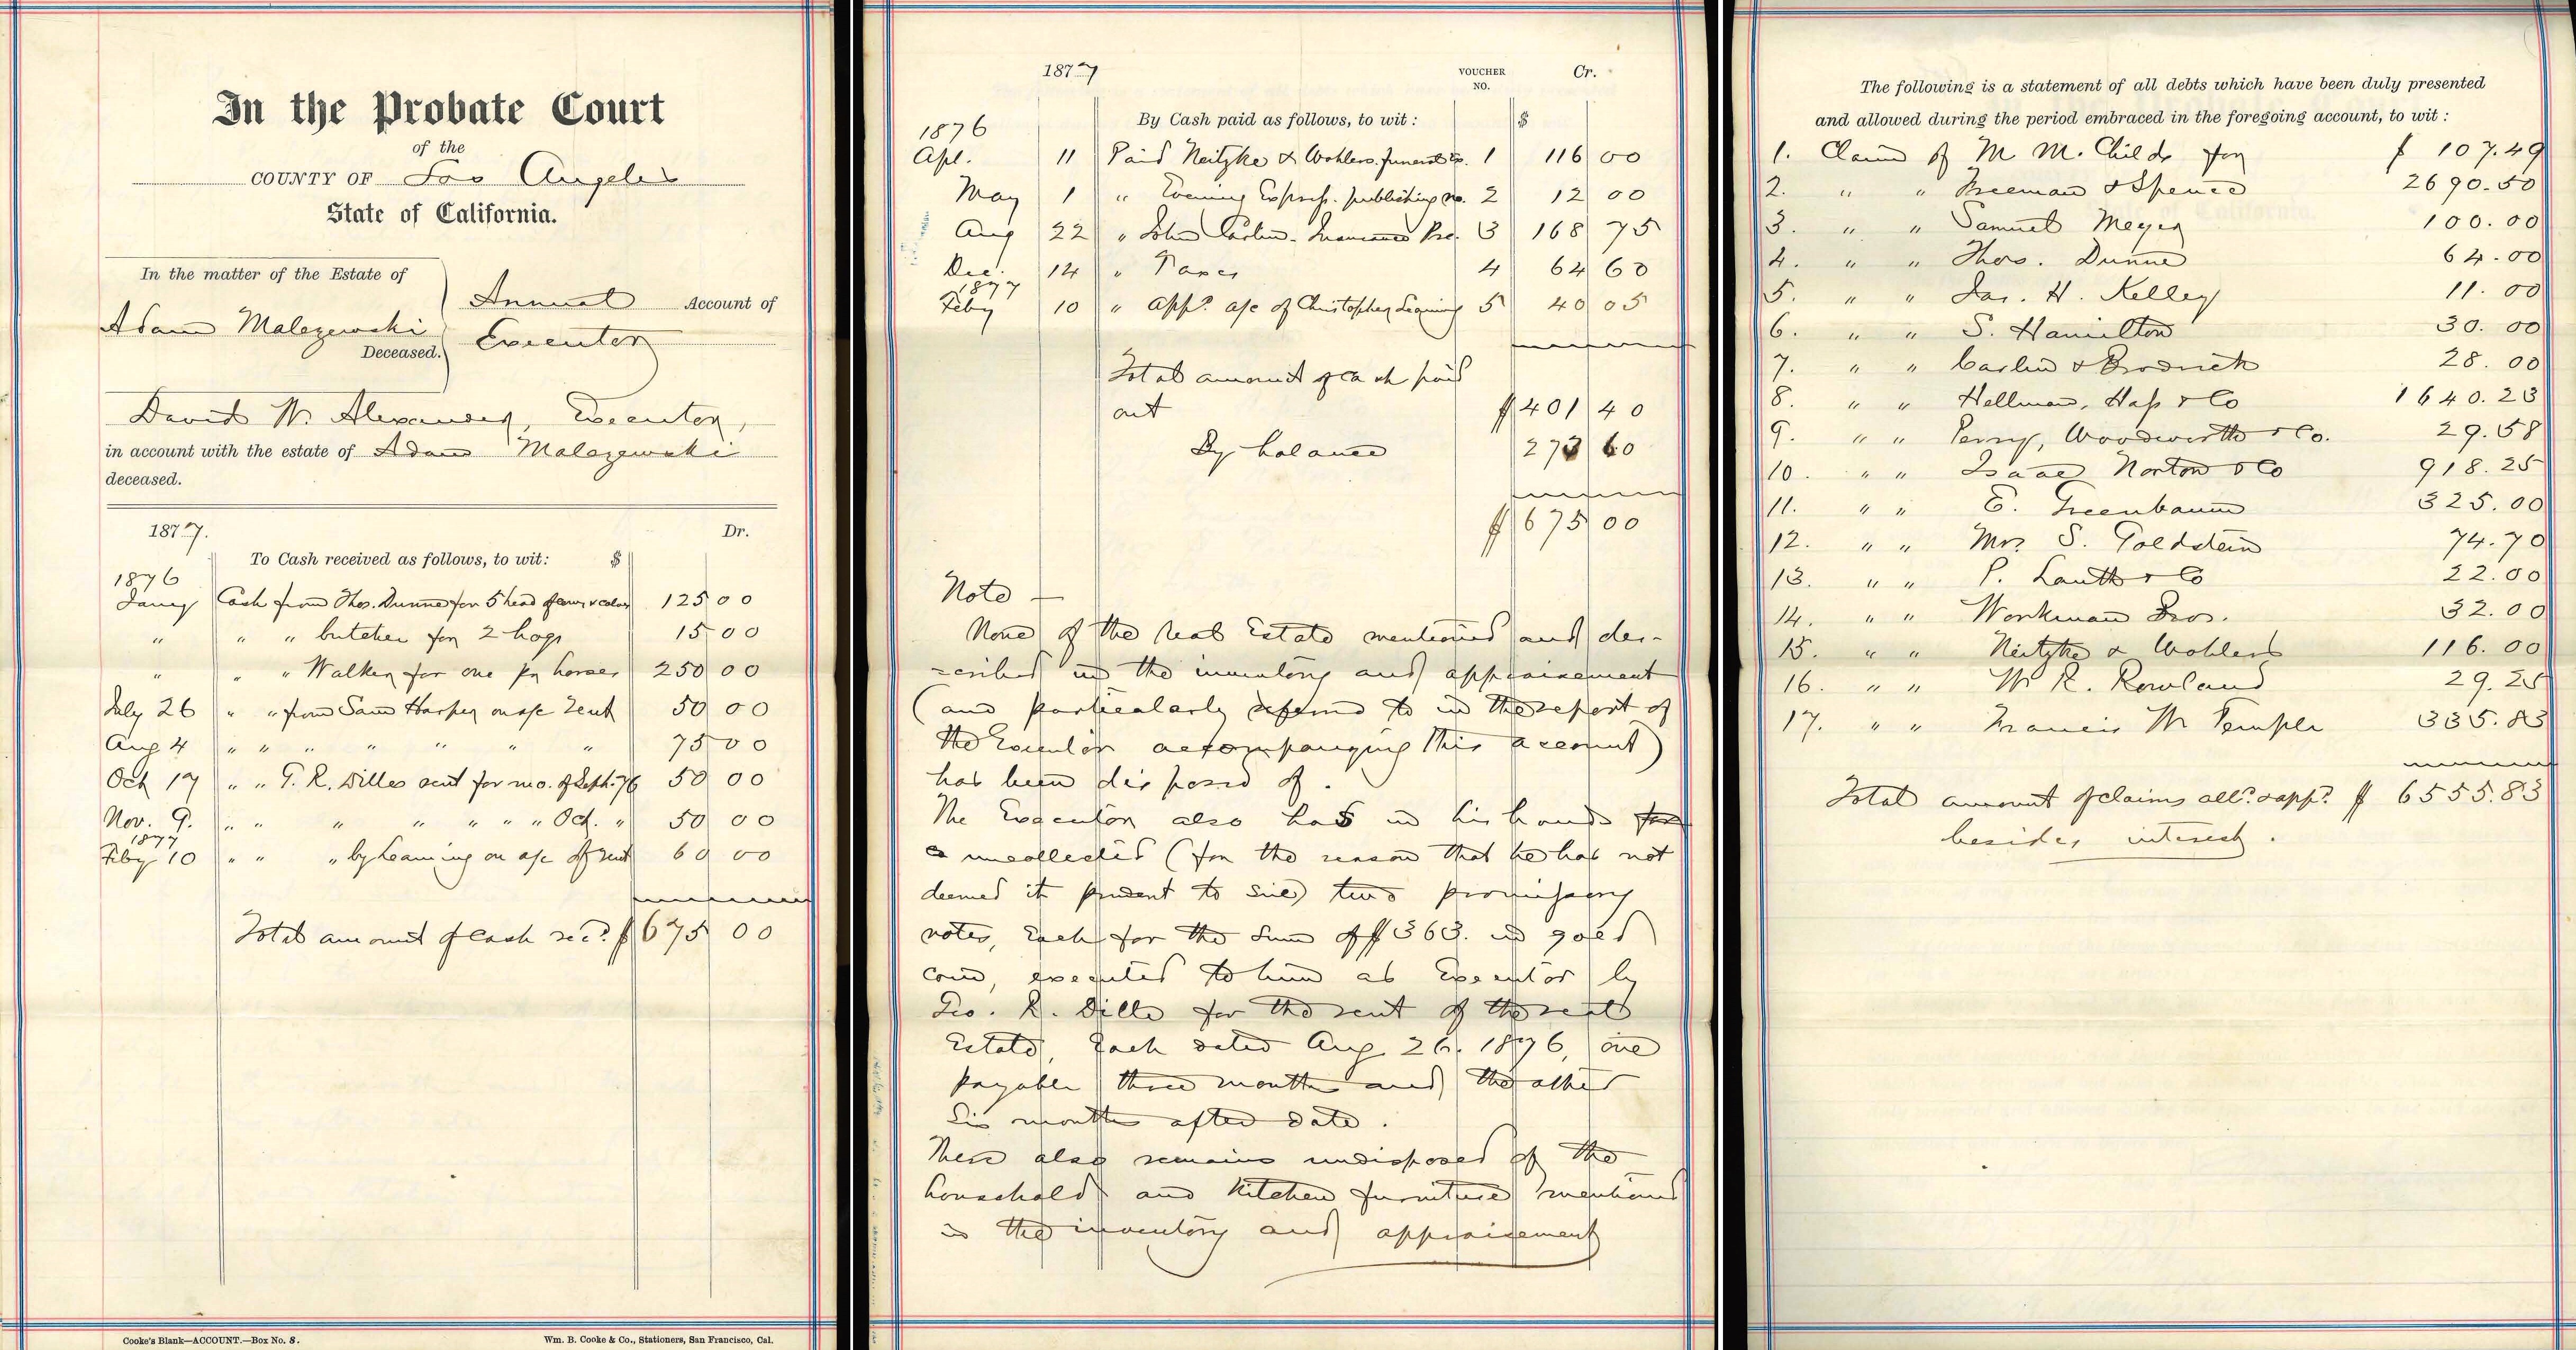 In the Probate Court
of the
COUNTY OF Los Angeles
State of California.
In the matter of the Estate of
Adam Malezewski
Deceased.
Annual Account of
Executor
David W. Alexander, Executor,
in account with the estate of Adam Malezewski
deceased.
1877. Dr.
To Cash received as follows, to wit: $
1876
Jany Cash from Thos. Dunne for 5 head of cows & calves 125 00
" " " butcher for 2 hogs 15 00
" " " Walker for one pr horses 250 00
July 26 " " from Sam Harper on a/c rent 50 00
Aug 4 " " " " " " " 75 00
Oct 17 " " G. R. Dille rent for mo. of Sept. 76 50 00
Nov. 9. " " " " " " " Oct. " 50 00
1877
Feby 10 " " " by Leaming on a/c of rent 60 00
Total amount of cash rec.d $ 675 00
Cooke's Blank—ACCOUNT.—Box No. 8.
Wm. B. Cooke & Co., Stationers, San Francisco, Cal.
1877 VOUCHER NO. Cr.
By Cash paid as follows, to wit: $
1876
Apl. 11 Paid Neitzke & Wohlers. funeral ex. 1 116 00
May 1 " Evening Express. publishing no. 2 12 00
Aug 22 " John Carlin. Insurance Pre. 3 168 75
Dec. 14 " Taxes 4 64 60
1877
Feby 10 " App.d a/c of Christopher Leaming 5 40 05
Total amount of cash paid
out $ 401 40
By balance 273 60
$ 675 00
Note —
None of the real Estate mentioned and des-
-cribed in the inventory and appraisement
(and particularly referred to in the report of
the Executor accompanying this account)
has been disposed of.
The Executor also has in his hands
uncollected (for the reason that he has not
deemed it prudent to sue) two promissory
notes, each for the sum of $363. in gold
coin, executed to him as Executor by
Geo. R. Dille for the rent of the real
Estate, Each dated Aug. 26. 1876, one
payable three months and the other
Six months after date.
There also remains undisposed of the
household and kitchen furniture mentioned
in the inventory and appraisement
The following is a statement of all debts which have been duly presented
and allowed during the period embraced in the foregoing account, to wit:
1. Claim of M. M. Childs for $ 107.49
2. " " Freeman & Spence 2690.50
3. " " Samuel Meyer 100.00
4. " " Thos. Dunne 64.00
5. " " Jas. H. Kelley 11.00
6. " " S. Hamilton 30.00
7. " " Carlin & Brodrick 28.00
8. " " Hellman, Haas & Co 1640.23
9. " " Perry, Woodworth & Co. 29.58
10. " " Isaac Norton & Co 918.25
11. " " E. Greenbaum 325.00
12. " " Mrs. S. Goldstein 74.70
13. " " P. Lauth & Co 22.00
14. " " Workman Bros. 32.00
15. " " Neitzke & Wohlers 116.00
16. " " W. R. Rowland 29.25
17. " " Francis W. Temple 335.83
Total amount of claims all.d & app.d $ 6555.83
besides interest.